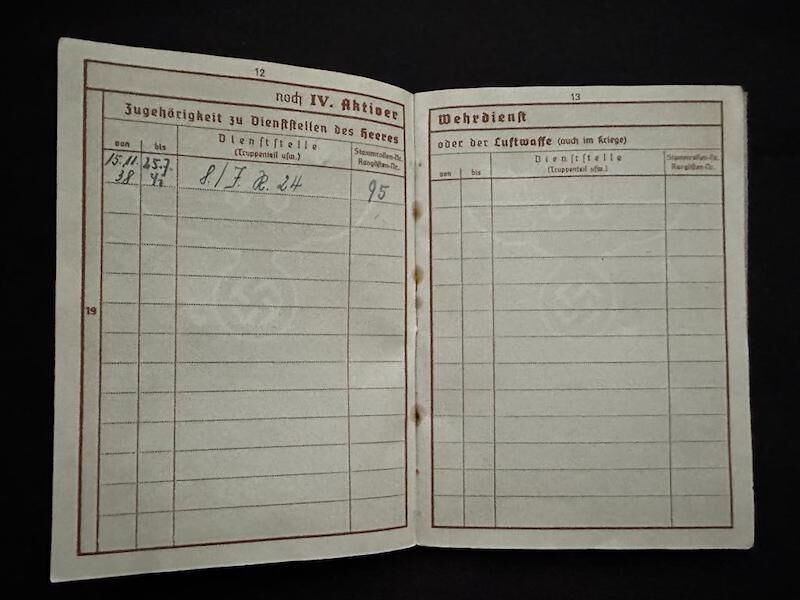 12
noch IV. Aktiver
Zugehörigkeit zu Dienststellen des Heeres
von
bis
Dienststelle
(Truppenteil usw.)
Stammrollen-Nr.
Ranglisten-Nr.
15.11. 25.7.
38 42
8./J. R. 24
95
19
13
Wehrdienst
oder der Luftwaffe (auch im Kriege)
von
bis
Dienststelle
(Truppenteil usw.)
Stammrollen-Nr.
Ranglisten-Nr.